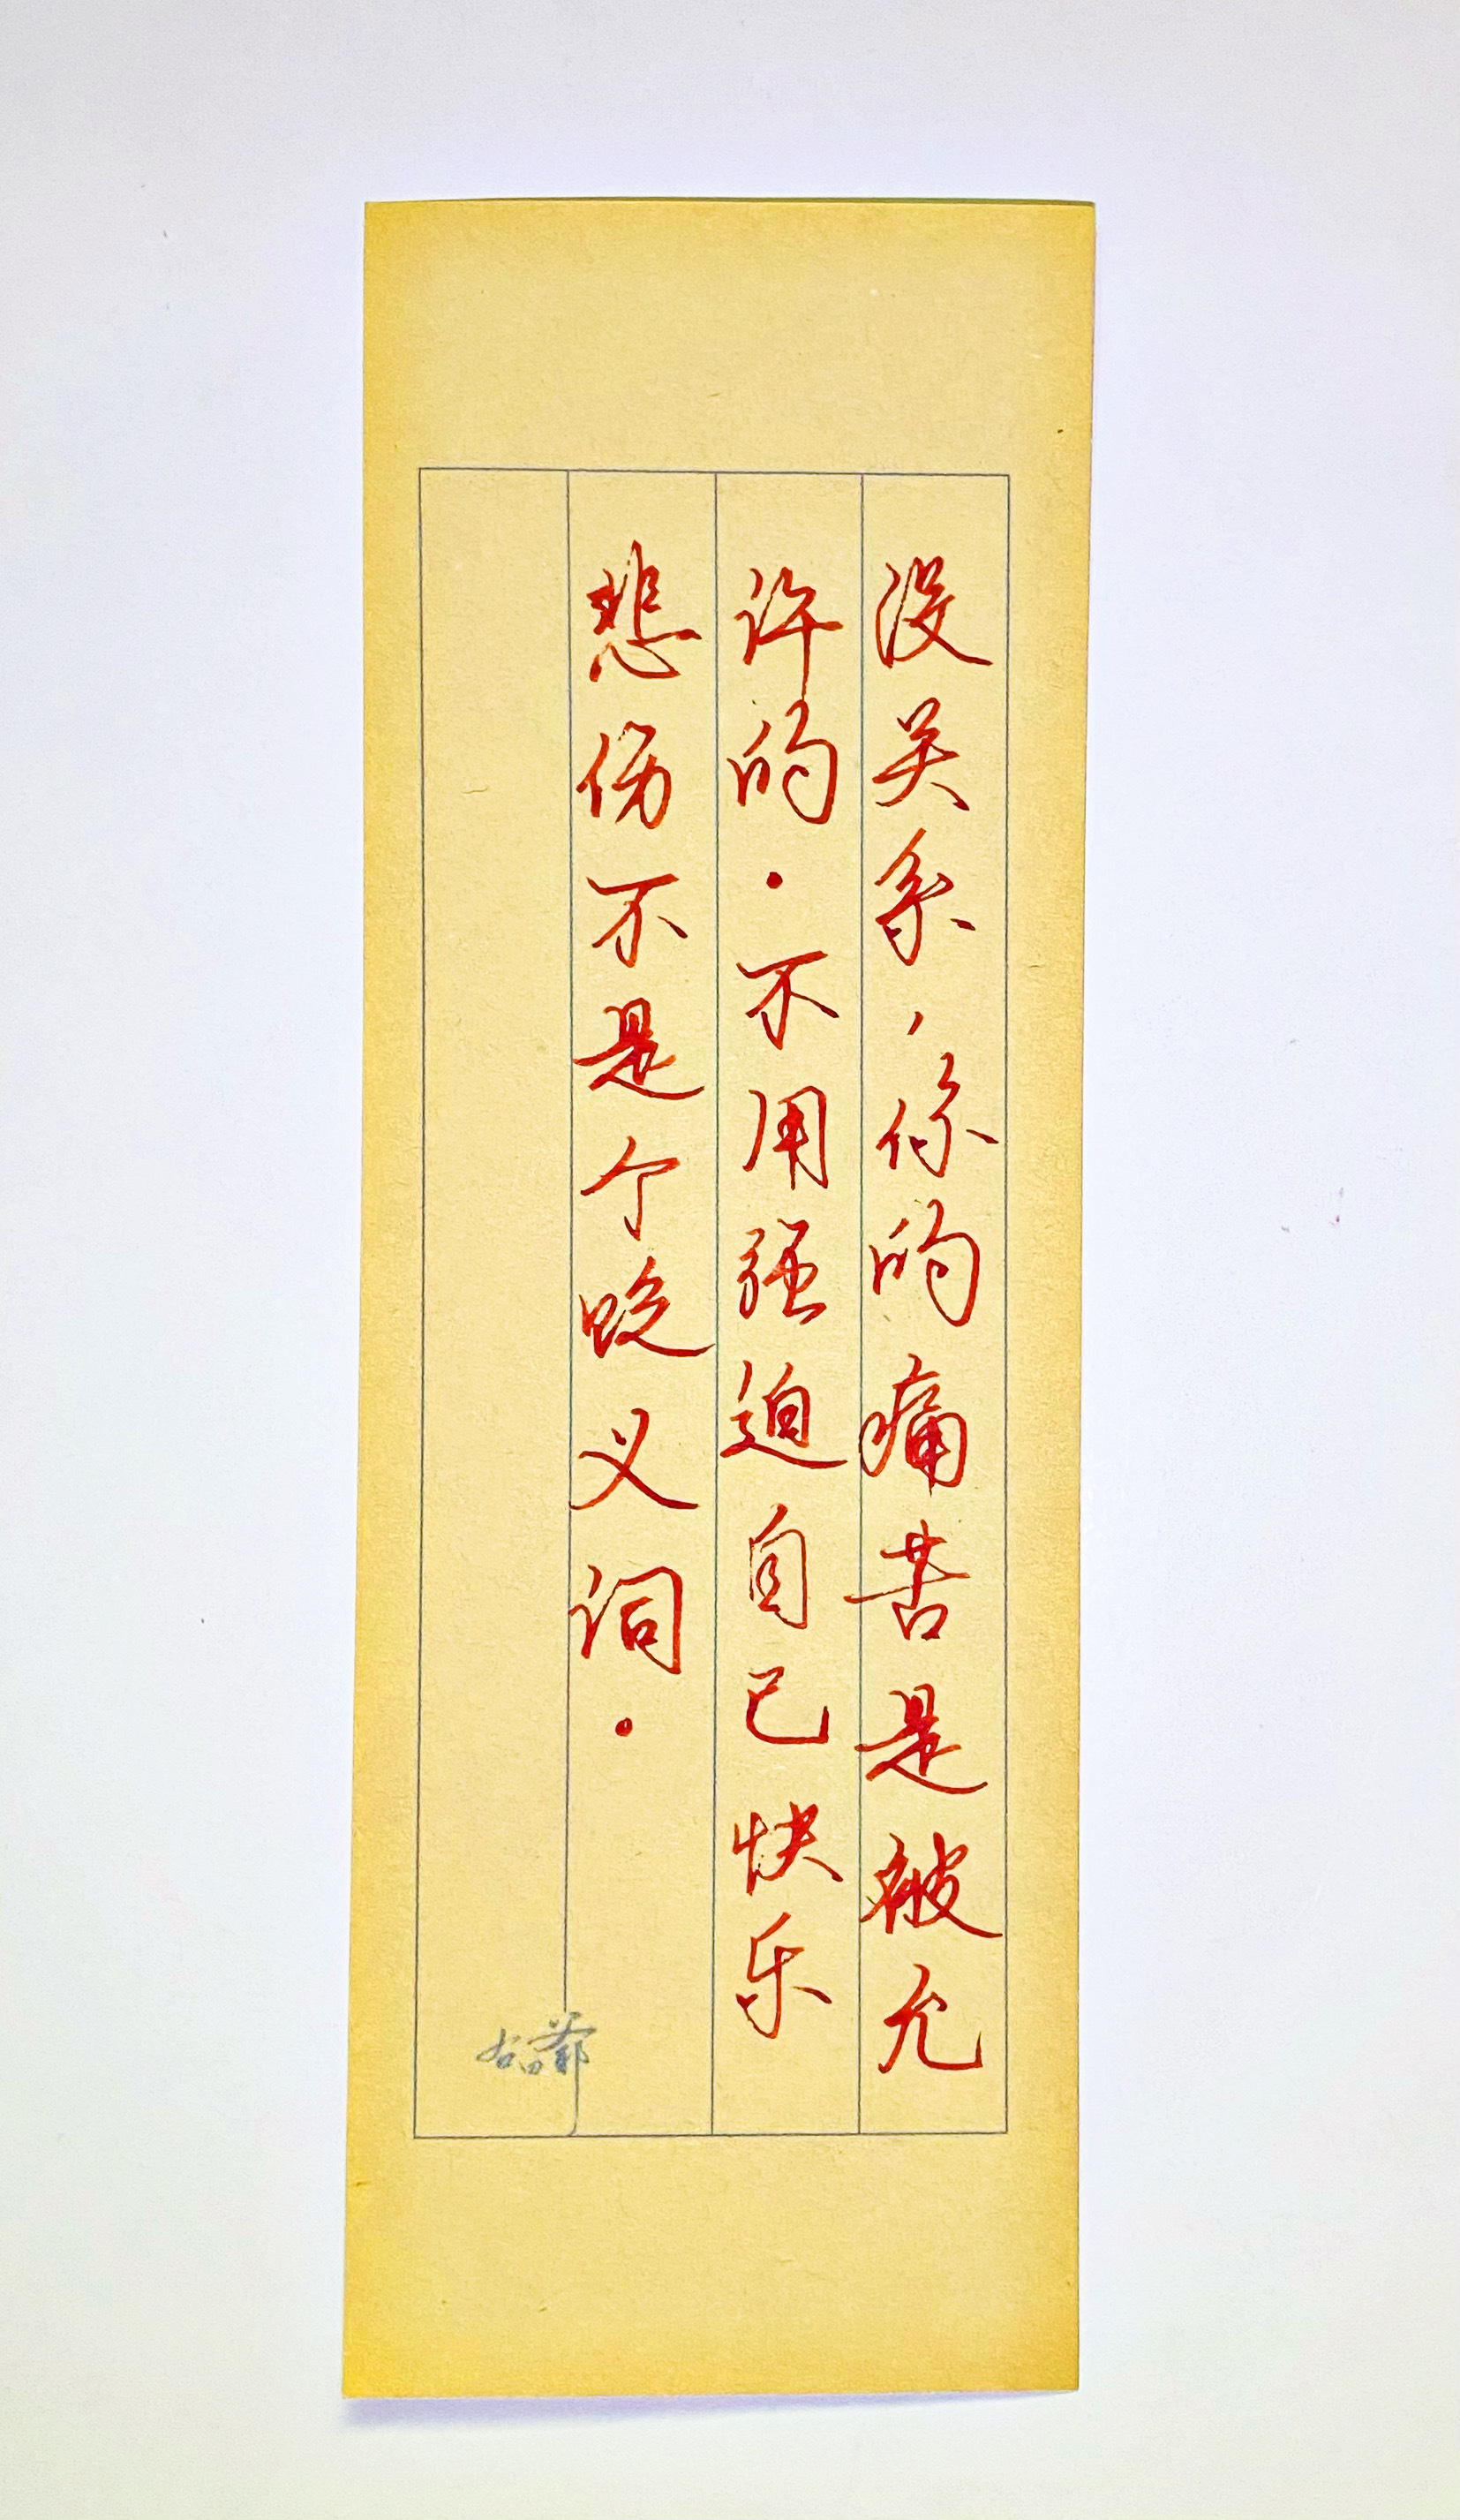 没关系，你的痛苦是被允
许的。不用强迫自己快乐
悲伤不是个贬义词。